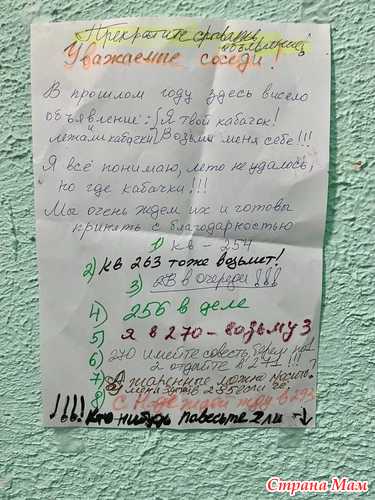 Прекратите срывать
объявление!
Уважаемые соседи!
В прошлом году здесь висело
объявление: "Я твой кабачок!
лежали кабачки Возьми меня себе!!!
Я всё понимаю, лето не удалось,
но где кабачки!!!
Мы очень ждем их и готовы
принять с благодарностью
1) кв - 254
2) кв 263 тоже возьмет!
3) в очереди !!!
4) 256 в деле
5) Я в 270 - возьму 3
6) 270 имейте совесть, берем по 1
2 отдайте в 271 !!!
7) А жаренные можно
8) С Надеждой жду в 293
!!!! Кто нибудь повесьте 2 ли →
Страна Мам